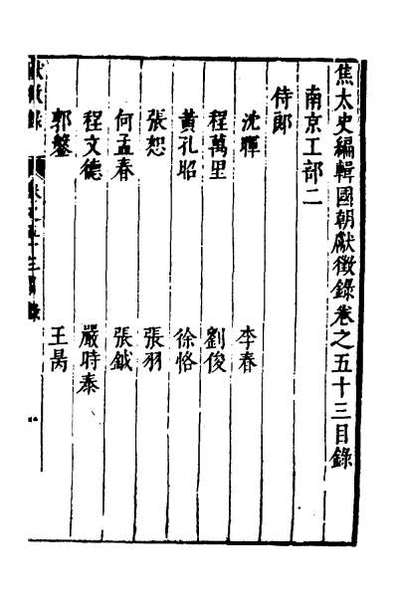 焦太史編輯國朝獻徵錄卷之五十三目錄
南京工部二
侍郎
沈暉　李春
程萬里　劉俊
黃孔昭　徐恪
張恕　張羽
何孟春　張鉞
程文德　嚴時泰
郭鋆　王昺
獻徵錄　卷之五十三目錄　一